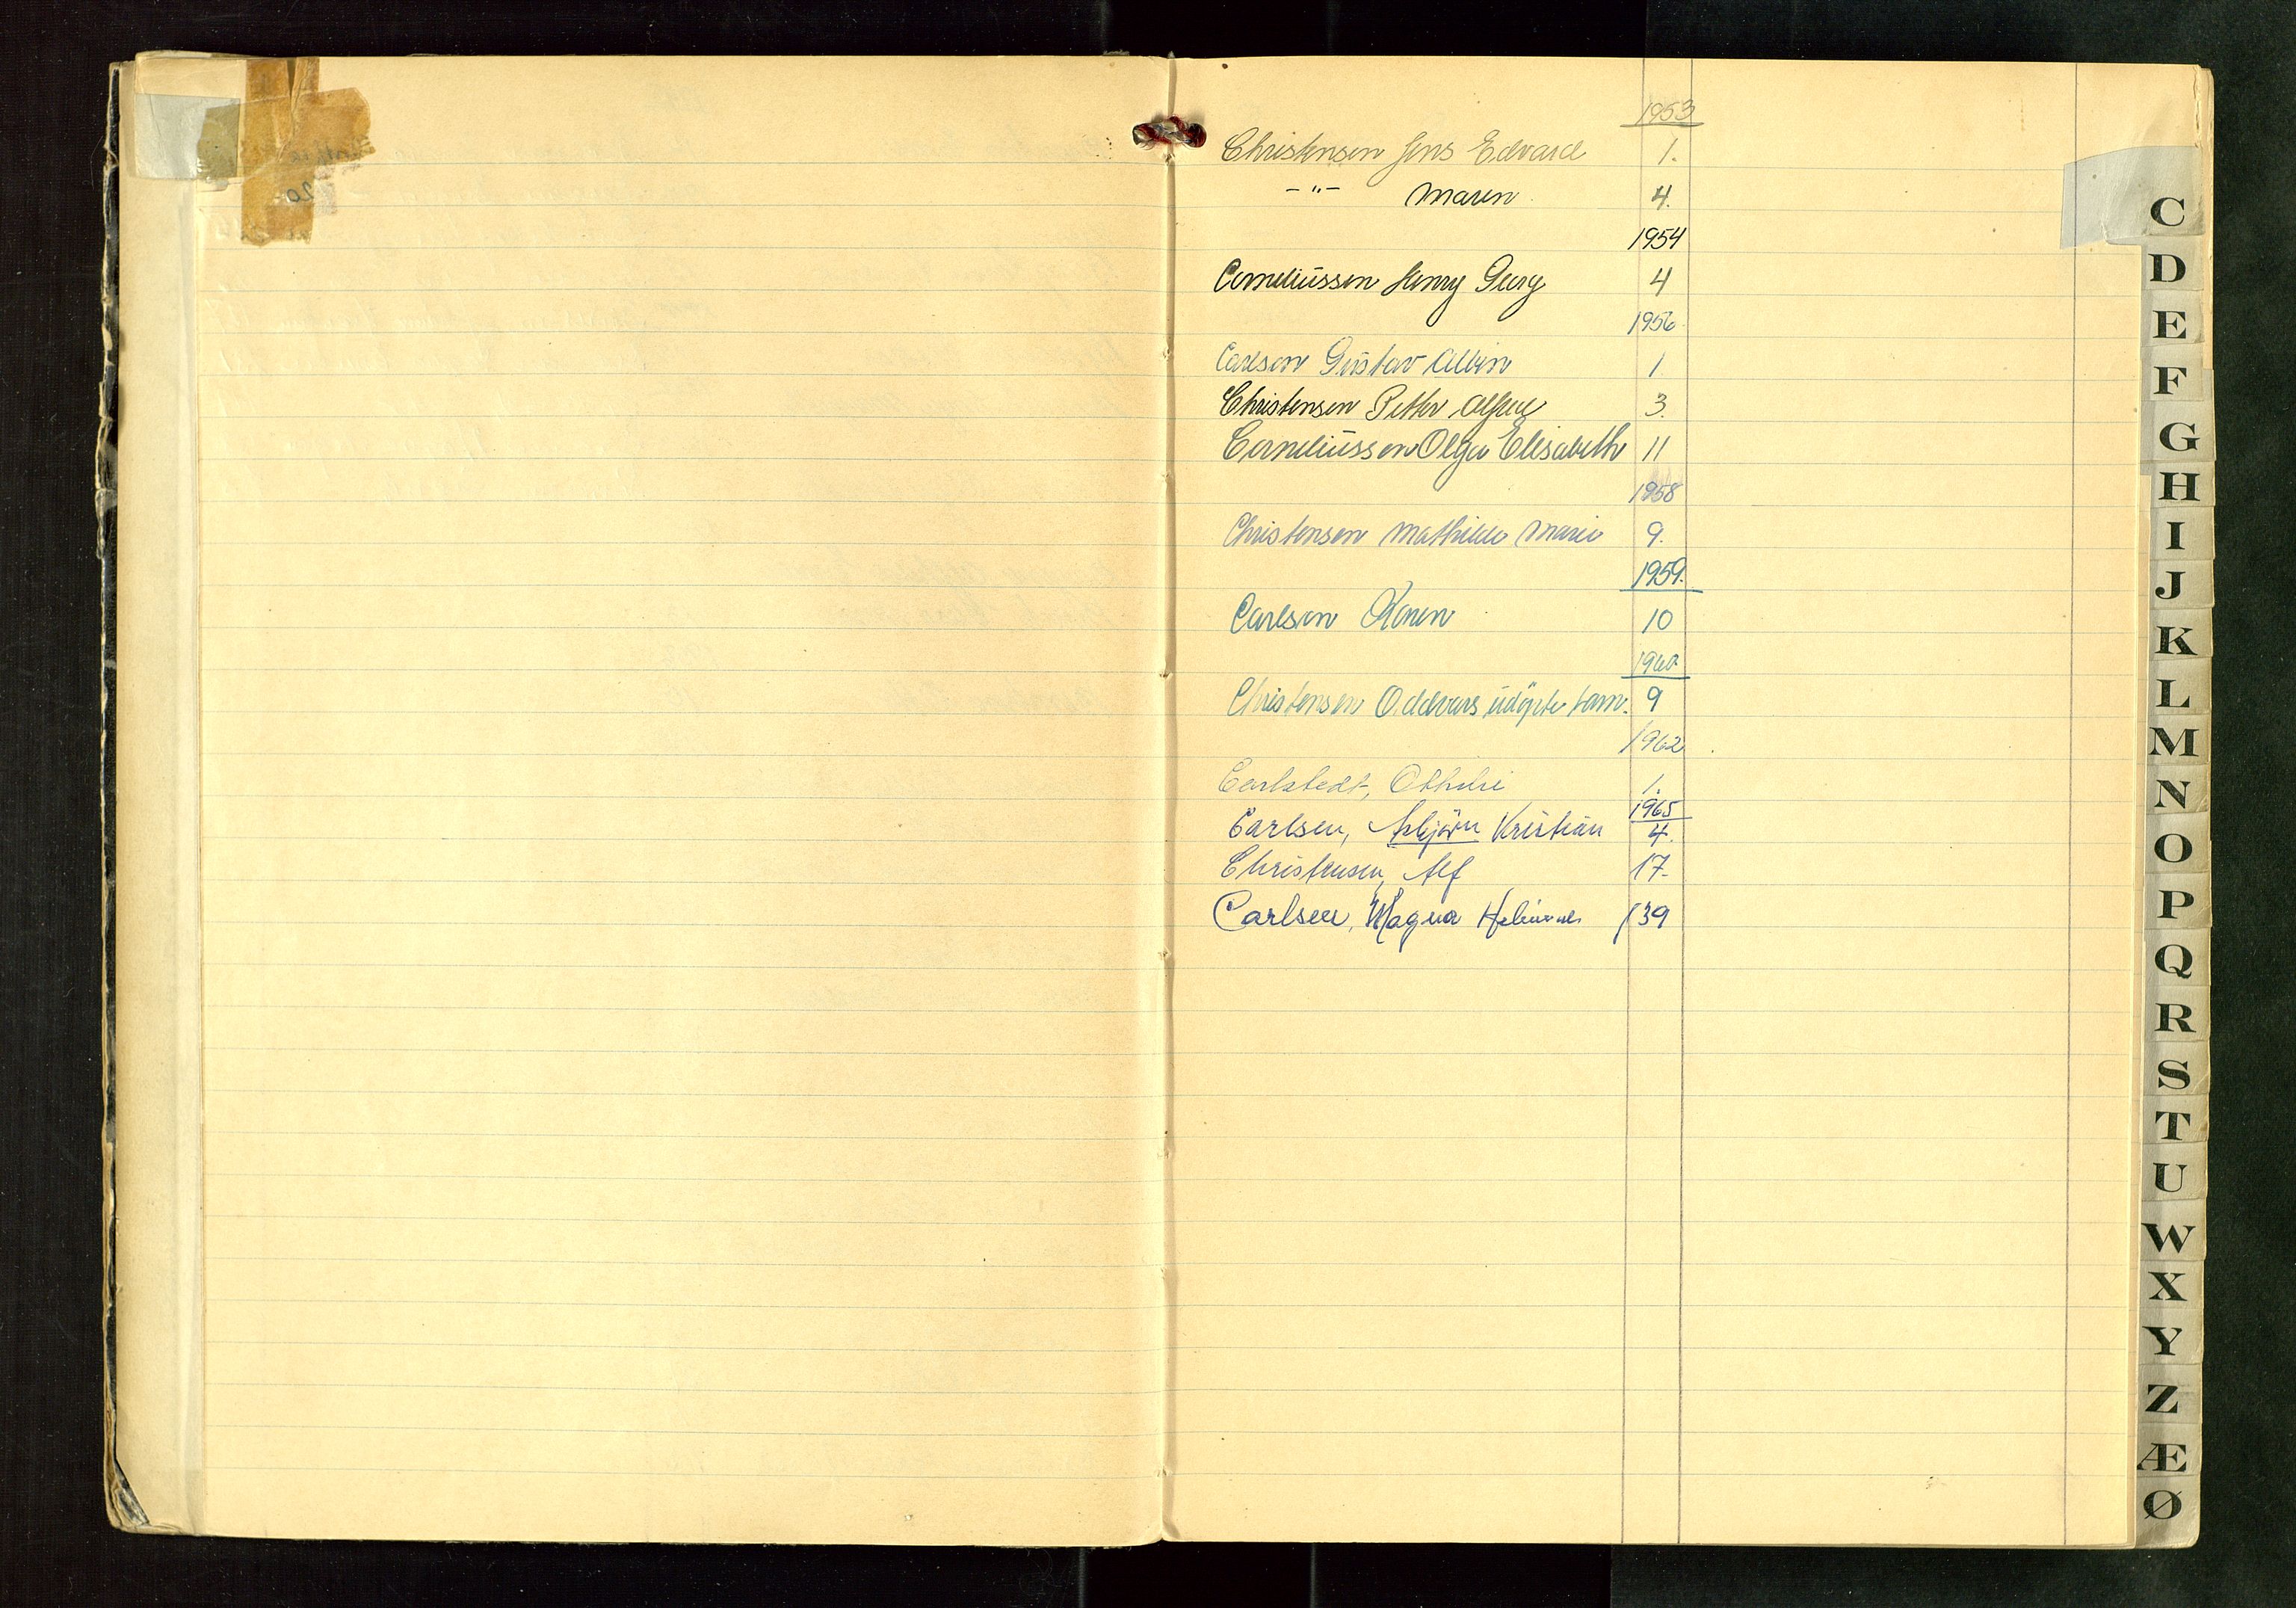 1953
Christensen Jens Edvard 1.
-"- Maren 4.
1954
Corneliussen Henry Georg 4
1956
Carlson Gustav Albin 1
Christensen Petter Alfred 3.
Corneliussen Olga Elisabeth 11
1958
Christensen Mathilde Marie 9.
1959.
Carlson Karen 10
1960
Christensen Oddvars udöpte 9
1962
Carlstedt, Othilie 1.
1965
Carlsen, Asbjörn Kristian 4.
Christensen, Alf 17.
Carlsen, Magna 39
C
D
E
F
G
H
I
J
K
L
M
N
O
P
Q
R
S
T
U
W
X
Y
Z
Æ
Ø